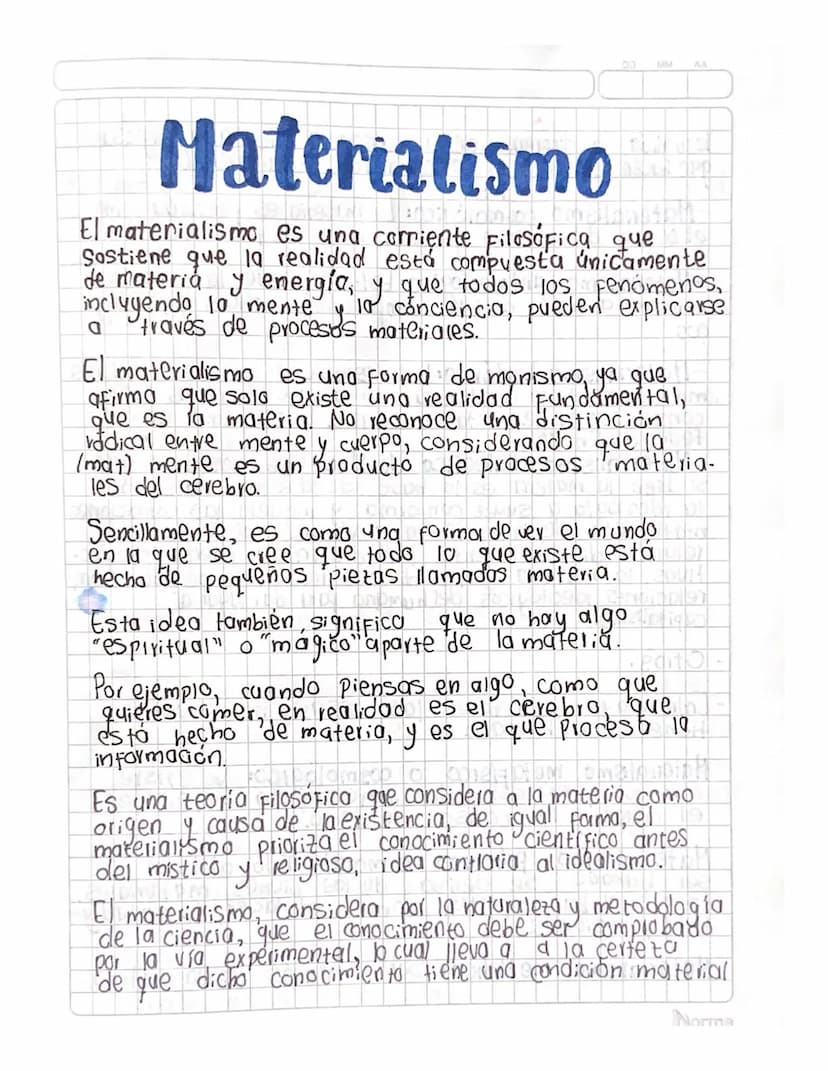 DD MM AA
Materialismo
El materialismo es una corriente Filosófica que
Sostiene que la realidad está compuesta únicamente
de materia y energía, y que todos los fenómenos,
incluyendo la mente y la conciencia, pueden explicarse
a través de procesos materiales.
El materialismo es una forma de monismo, ya que
afirma que solo existe una realidad Fundamental,
que es la materia. No reconoce una distinción
radical entre mente y cuerpo, considerando que la
(mat) mente es un producto de procesos materia-
les del cerebro.
Sencillamente, es como una forma de ver el mundo
en la que se cree que todo lo que existe está
hecho de pequeños piezas llamados materia.
Esta idea también, significa que no hay algo
"espiritual" o "magico" aparte de la materia.
Por ejemplo, cuando piensas en algo, como que
quieres comer, en realidad es el cerebro, que
está hecho de materia, y es el que procesa la
información.
Es una teoría Filosófica que considera a la materia como
origen y causa de la existencia, de igual forma, el
materialismo prioriza el conocimiento científico antes
del místico y religioso, idea contraria al idealismo.
El materialismo, considera por la naturaleza y metodología
de la ciencia, que el conocimiento debe ser comprobado
por la vía experimental, lo cual lleva a a la certeza
de que dicho conocimiento tiene una condición material
Norma